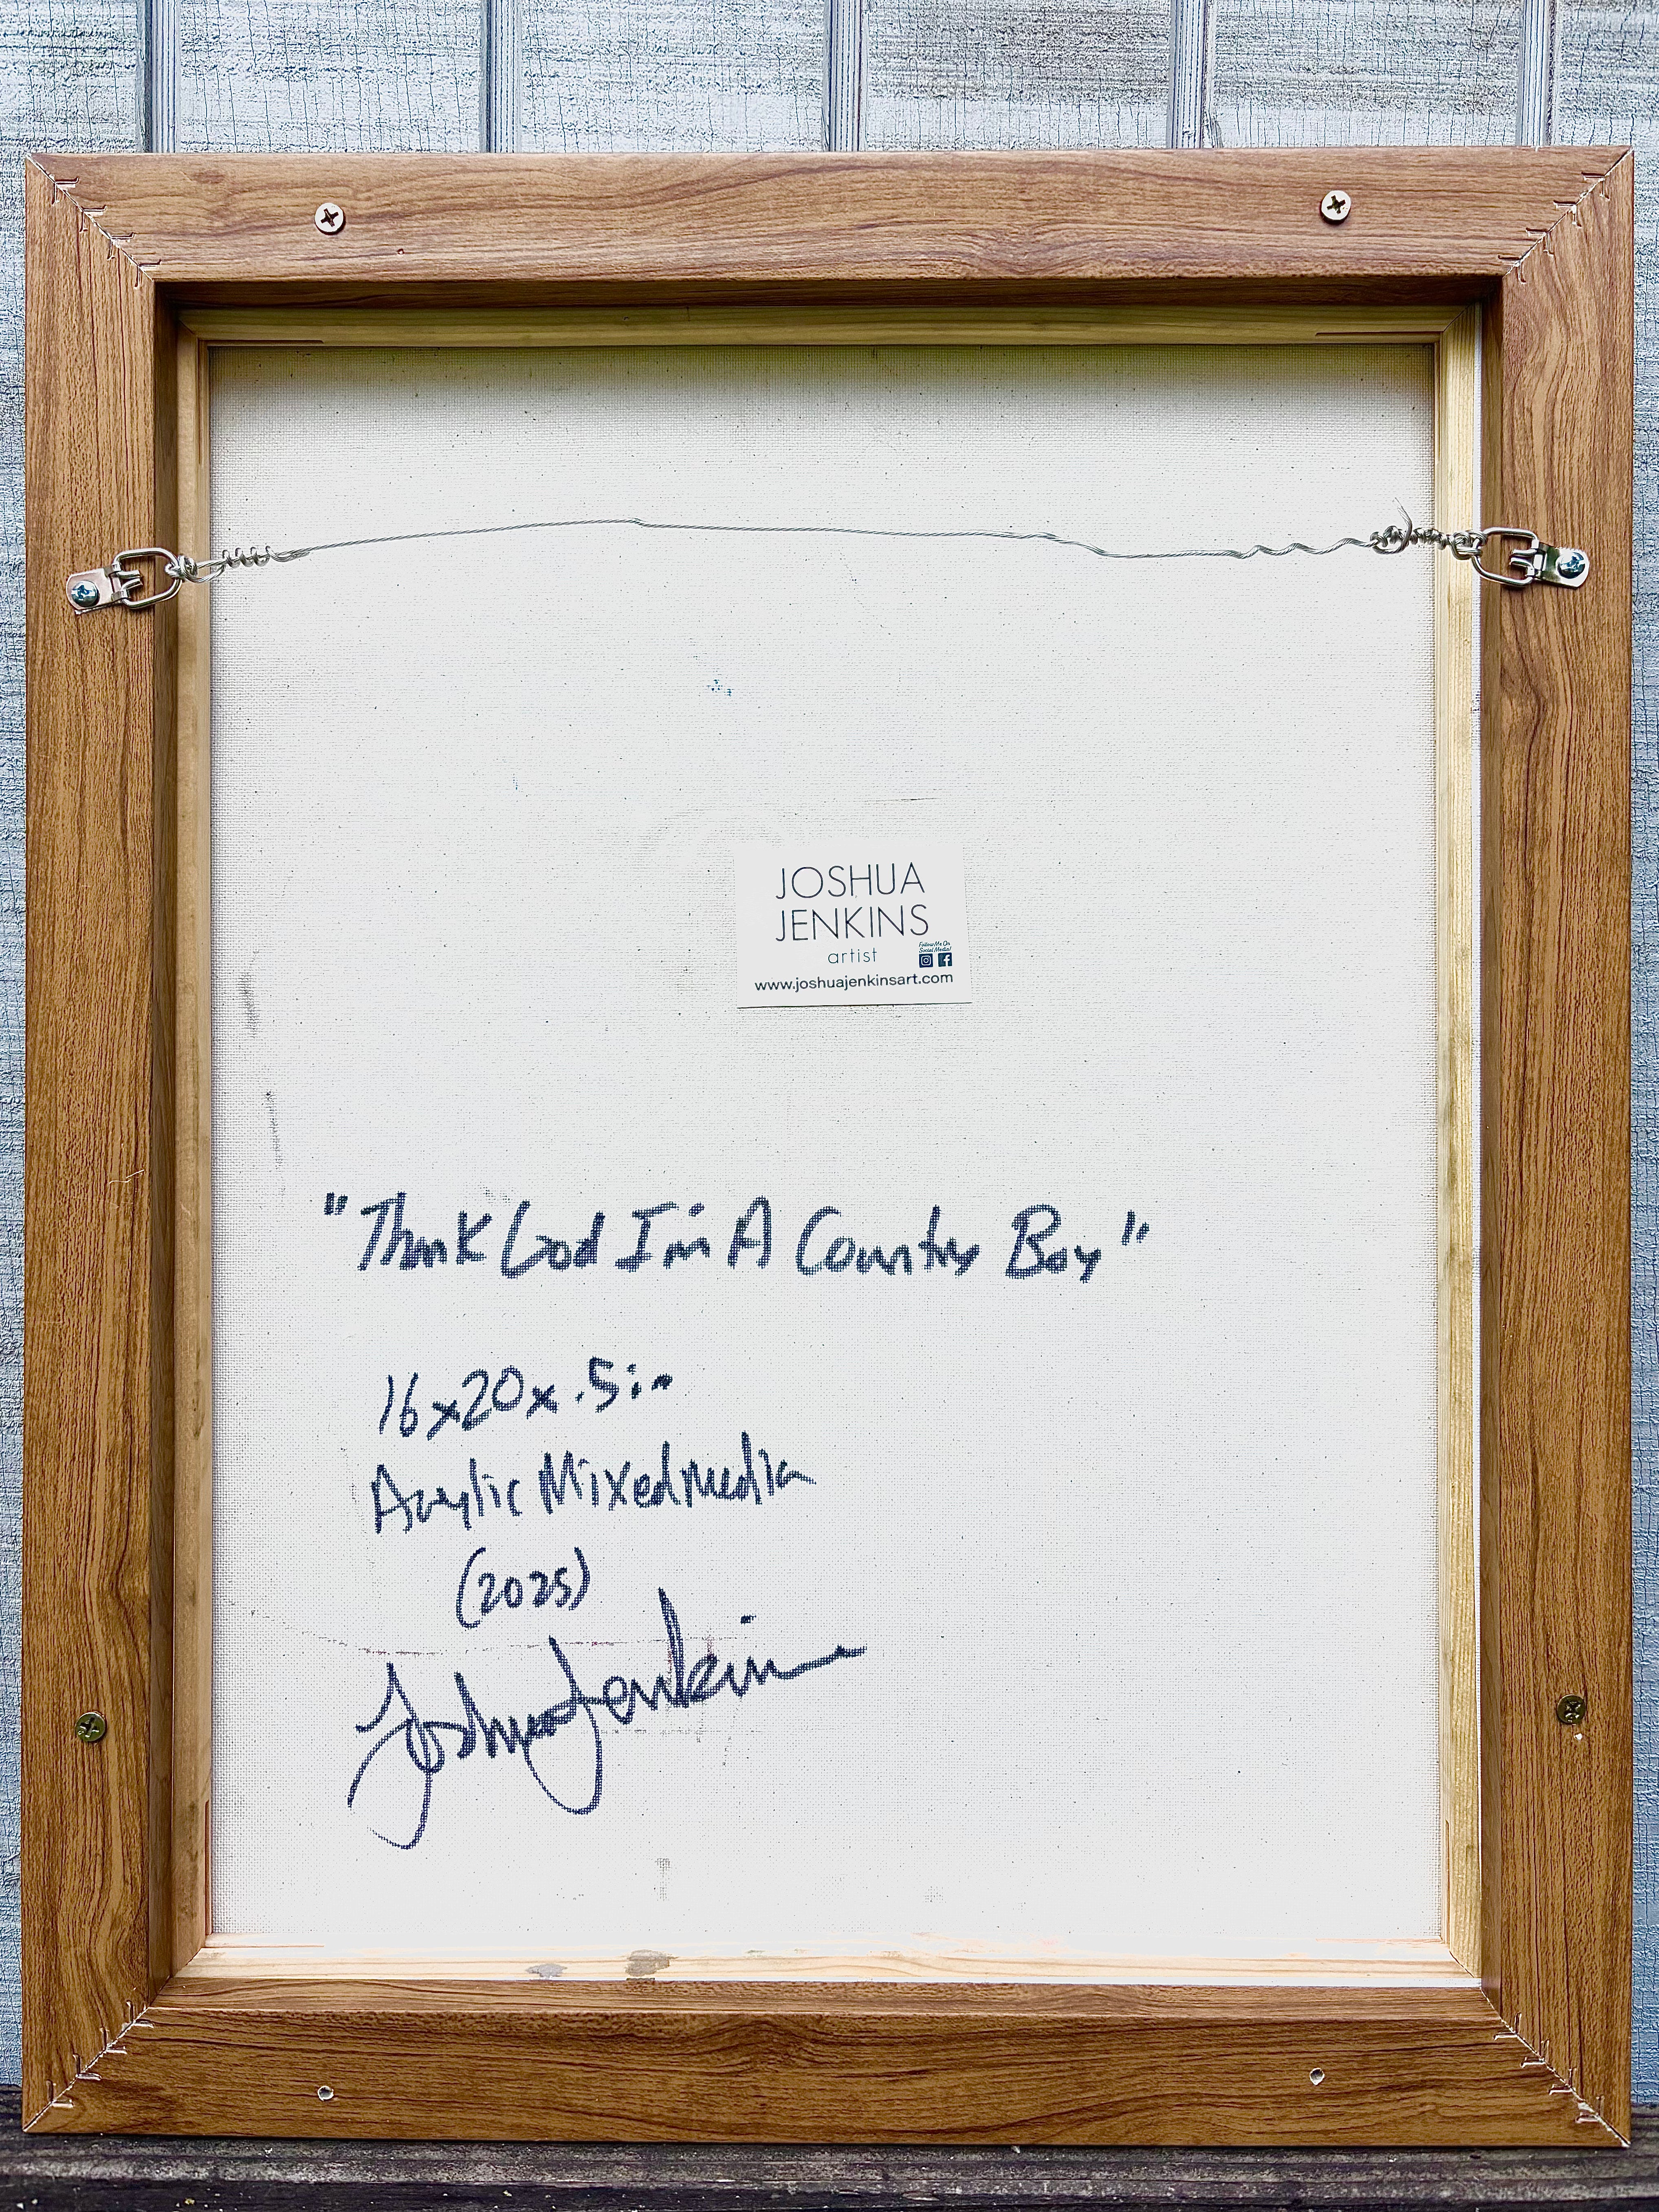 JOSHUA
JENKINS
artist
Follow Me On
Social Media!
www.joshuajenkinsart.com
"Thank God I'm A Country Boy"
16x20x.5in
Acrylic Mixed Media
(2025)
Joshua Jenkins